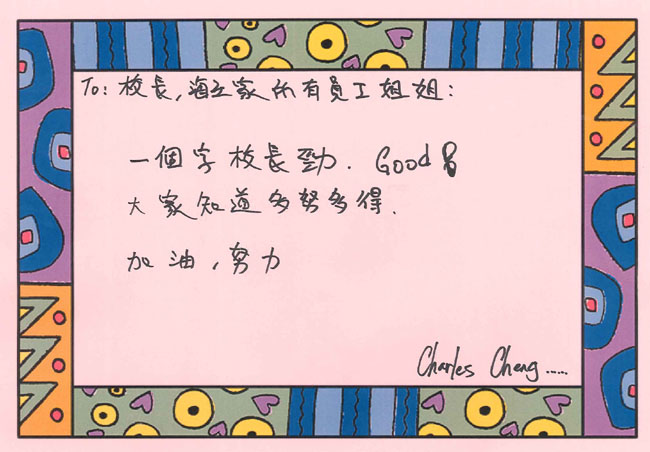 To: 校長，海之家所有員工姐姐：
一個字校長勁. Good
大家知道多努多得.
加油，努力
Charles Cheng......